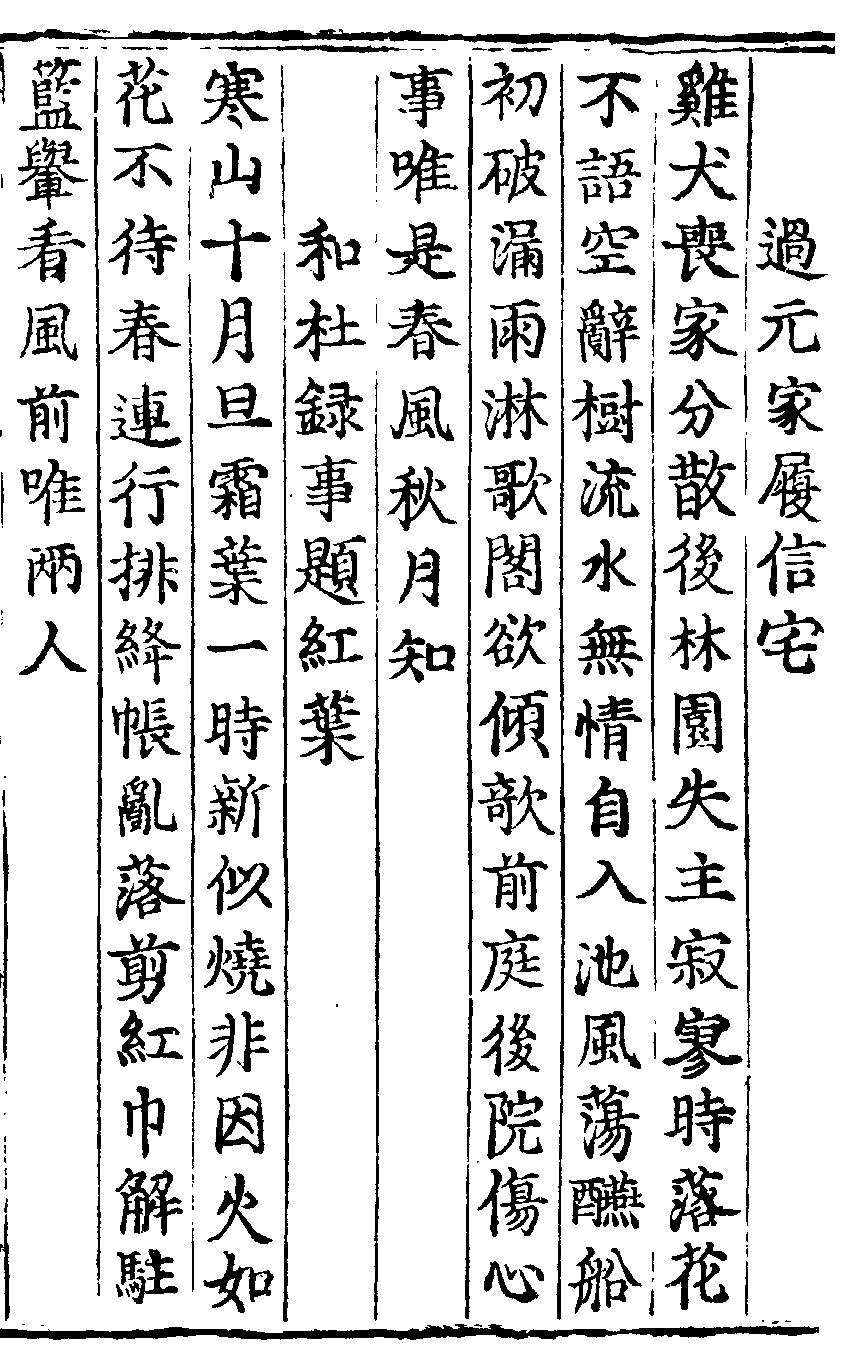 過元家履信宅
雞犬喪家分散後林園失主寂寥時落花
不語空辭樹流水無情自入池風蕩醼船
初破漏雨淋歌閣欲傾欹前庭後院傷心
事唯是春風秋月知
和杜録事題紅葉
寒山十月旦霜葉一時新似燒非因火如
花不待春連行排絳帳亂落剪紅巾解駐
籃轝看風前唯兩人